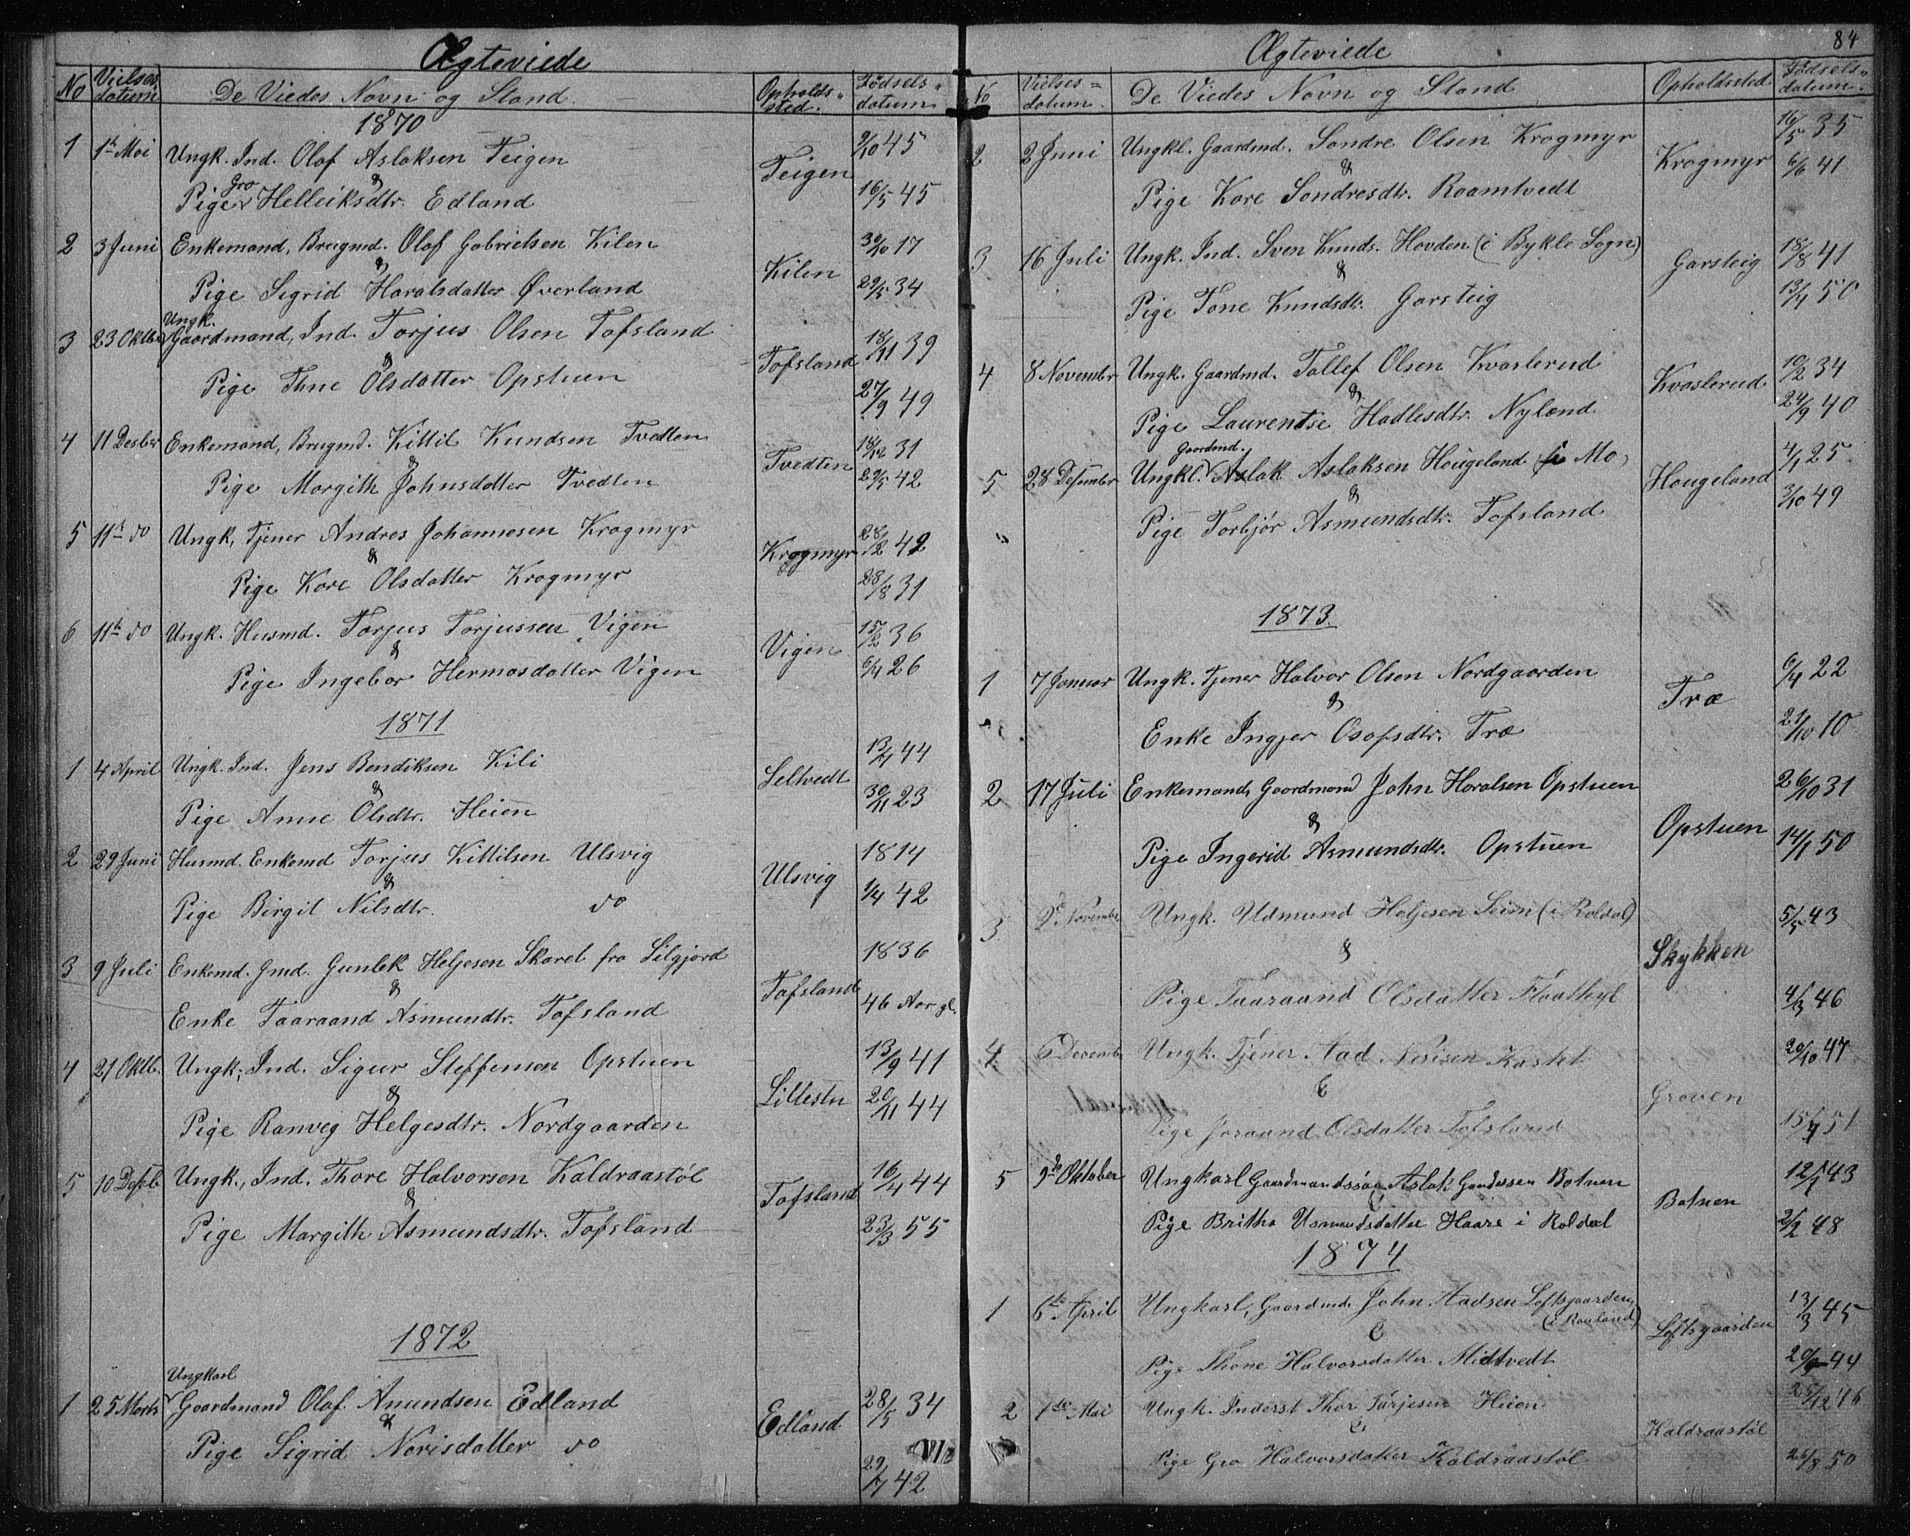 Ægteviede
No Vielses datum De Viedes Navn og Stand. Opholds-sted. Fødsels-datum
1870
1 1ste Mai Ungk. Ind. Olaf Aslaksen Teigen 9/10 45
& Teigen
Pige Gro Helleiksdtr. Edland 16/5 45
2 3 Juni Enkemand, Brugmd. Olaf Gabrielsen Kilen 30/10 17
& Kilen
Pige Sigrid Haralsdatter Øverland 29/5 34
3 23 Oktbr Ungk. Gaardmand, Ind. Torjus Olsen Tofsland 18/11 39
& Tofsland
Pige Tone Olsdatter Opstuen 27/9 49
4 11 Desber Enkemand, Brugmd. Kittil Knudsen Tvedten 18/12 31
& Tvedten
Pige Margith Johnsdatter Tvedten 29/5 42
5 11te do Ungk, Tjener Andres Johannesen Krogmyr 28/2 42
& Krogmyr
Pige Kare Olsdatter Krogmyr 28/8 31
6 11te do Ungk. Husmd. Torjus Torjussen Vigen 15/2 36
& Vigen
Pige Ingebor Hermosdatter Vigen 6/4 26
1871
1 4 April Ungk. Ind. Jens Bendiksen Kili 13/4 44
& Seltvedt
Pige Anne Olsdtr. Heien 30/11 23
2 29 Juni Husmd. Enkemd Torjus Kittilsen Ulsvig 1814
& Ulsvig
Pige Birgit Nilsdtr. do 1/4 42
3 9 Juli Enkemd. Gmd. Gunlek Heljesen Skarel fra Silgjord 1836
& Tofsland
Enke Taaraand Asmundtr. Tofsland 46 Aar gl.
4 21 Oktb. Ungk, Ind. Sigur Steffenson Opstuen 13/9 41
& Lillestu
Pige Ranveg Helgesdtr. Nordgaarden 20/11 44
5 10 Desb. Ungk., Ind. Thore Halvorsen Kaldraastøl 16/4 44
& Tofsland
Pige Margith Asmundsdtr. Tofsland 23/3 55
1872
1 25 Marts Ungkarl Gaardmand Olaf Amundsen Edland 28/5 34
& Edland
Pige Sigrid Norisdatter do 29/7 42
84
Ægteviede
No Vielses-datum. De Viedes Navn og Stand Opholdssted Fødsels-datum.
2 2 Juni Ungkl. Gaardmd. Sondre Olsen Krogmyr 16/5 35
& Krogmyr
Pige Kare Sondresdtr. Raamtvedt 6/6 41
3 16 Juli Ungk. Ind. Sven Knuds. Hovden (i Bykle Sogn) 18/8 41
& Garsteig
Pige Tone Knudsdtr. Garsteig 13/4 50
4 8 Novembr Ungk. Gaardmd. Tallef Olsen Kvasterud 10/2 34
& Kvasterud
Pige Laurentse Hadlesdtr. Nylænd 24/9 40
5 28 Desember Ungkl. Gaardmd. Aslak Aslaksen Hougeland (i Mo) 4/1 25
& Hougeland
Pige Torbjør Asmundsdtr. Tofsland 3/10 49
1873
1 7 Januar Ungk. Tjener Halvor Olsen Nordgaarden 6/4 22
& Træ
Enke Ingjer Osofsdtr. Træ 21/10 10
2 17 Juli Enkemand, Gaardmand John Haralsen Opstuen 26/10 31
& Opstuen
Pige Ingerid Asmundsdtr. Opstuen 14/1 50
3 November Ungk. Udmund Heljesen Seim (i Roldal) 5/5 43
& Skykken
Pige Taaraand Olsdatter Flaathyl 4/3 46
4 6 Decemb Ungk. Tjener Aad Nerisen Kastet 20/10 47
& Groven
Pige Joraand Olsdatter Tofsland 15/4 51
5 9de Oktober Ungkarl Gaardmandssøn Aslak Gundersen Botnen 12/1 43
& Botnen
Pige Britha Usmundsdatter Haare i Roldal 2/2 48
1874
1 6te April Ungkarl, Gaardmd. John Aadsen Loftsgaarden 13/3 45
(i Rauland)
& Loftsgaarden
Pige Thone Halvorsdatter Midtvedt 20/9 44
2 Mai Ungk. Inderst Thor Tarjesen Heien 25/12 46
& Kaldraastøl
Pige Gro Halvorsdatter Kaldraastøl 25/8 50